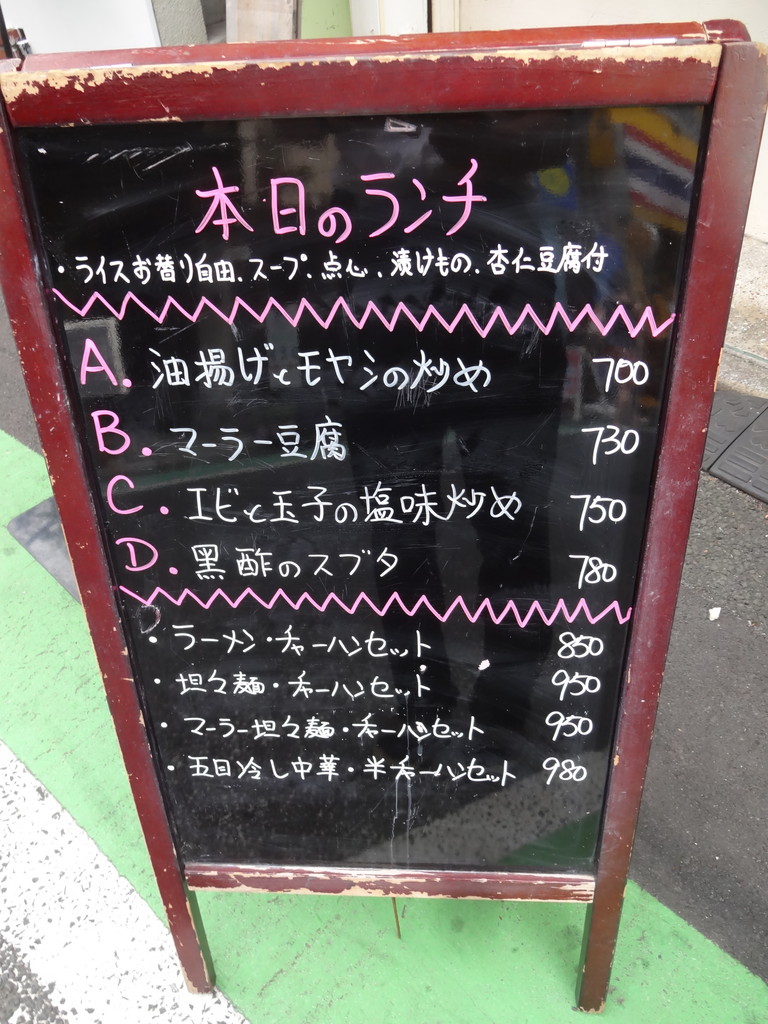 本日のランチ
・ライスお替り自由、スープ、点心、漬けもの、杏仁豆腐付
A. 油揚げとモヤシの炒め 700
B. マーラー豆腐 730
C. エビと玉子の塩味炒め 750
D. 黒酢のスブタ 780
・ラーメン・チャーハンセット 850
・坦々麺・チャーハンセット 950
・マーラー坦々麺・チャーハンセット 950
・五目冷し中華・半チャーハンセット 980